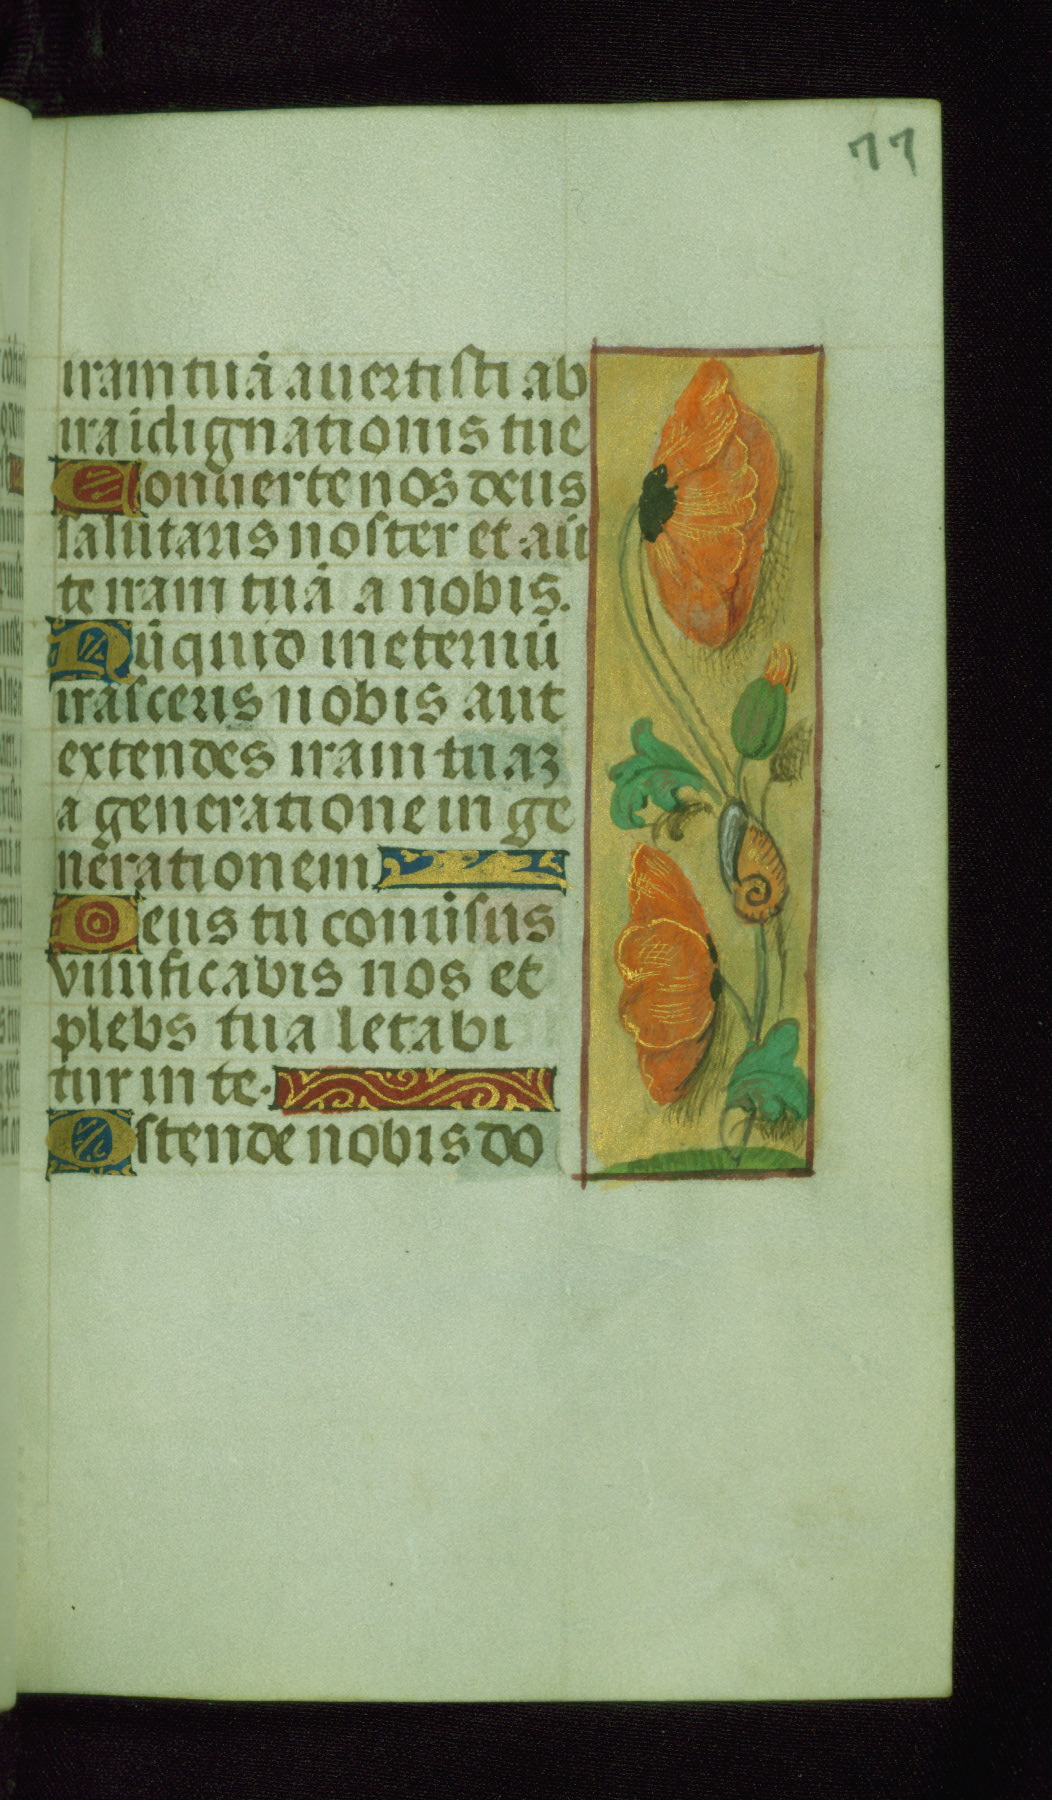 77
iram tuā auertisti ab
ira īdignationis tue
Conuerte nos deus
salutaris noster et auer
te iram tuā a nobis.
Nūquid in eternū
irasceris nobis aut
extendes iram tuaz
a generatione in ge
nerationem
Deus tu conuersus
viuificabis nos et
plebs tua letabi
tur in te.
Ostende nobis do